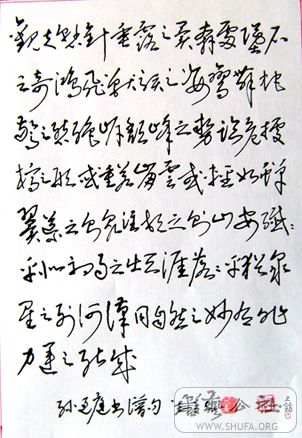 觀夫懸針垂露之異奔雷墜石
之奇鴻飛獸駭之姿鸞舞蛇
驚之態絕岸頹峰之勢臨危據
槁之形或重若崩雲或輕如蟬
翼導之則泉注頓之則山安纖〻
乎似初月之出天涯落〻乎猶衆
星之列河漢同自然之妙有非
力運之能成
孫過庭書譜句
公社
WWW.SHUFA.ORG